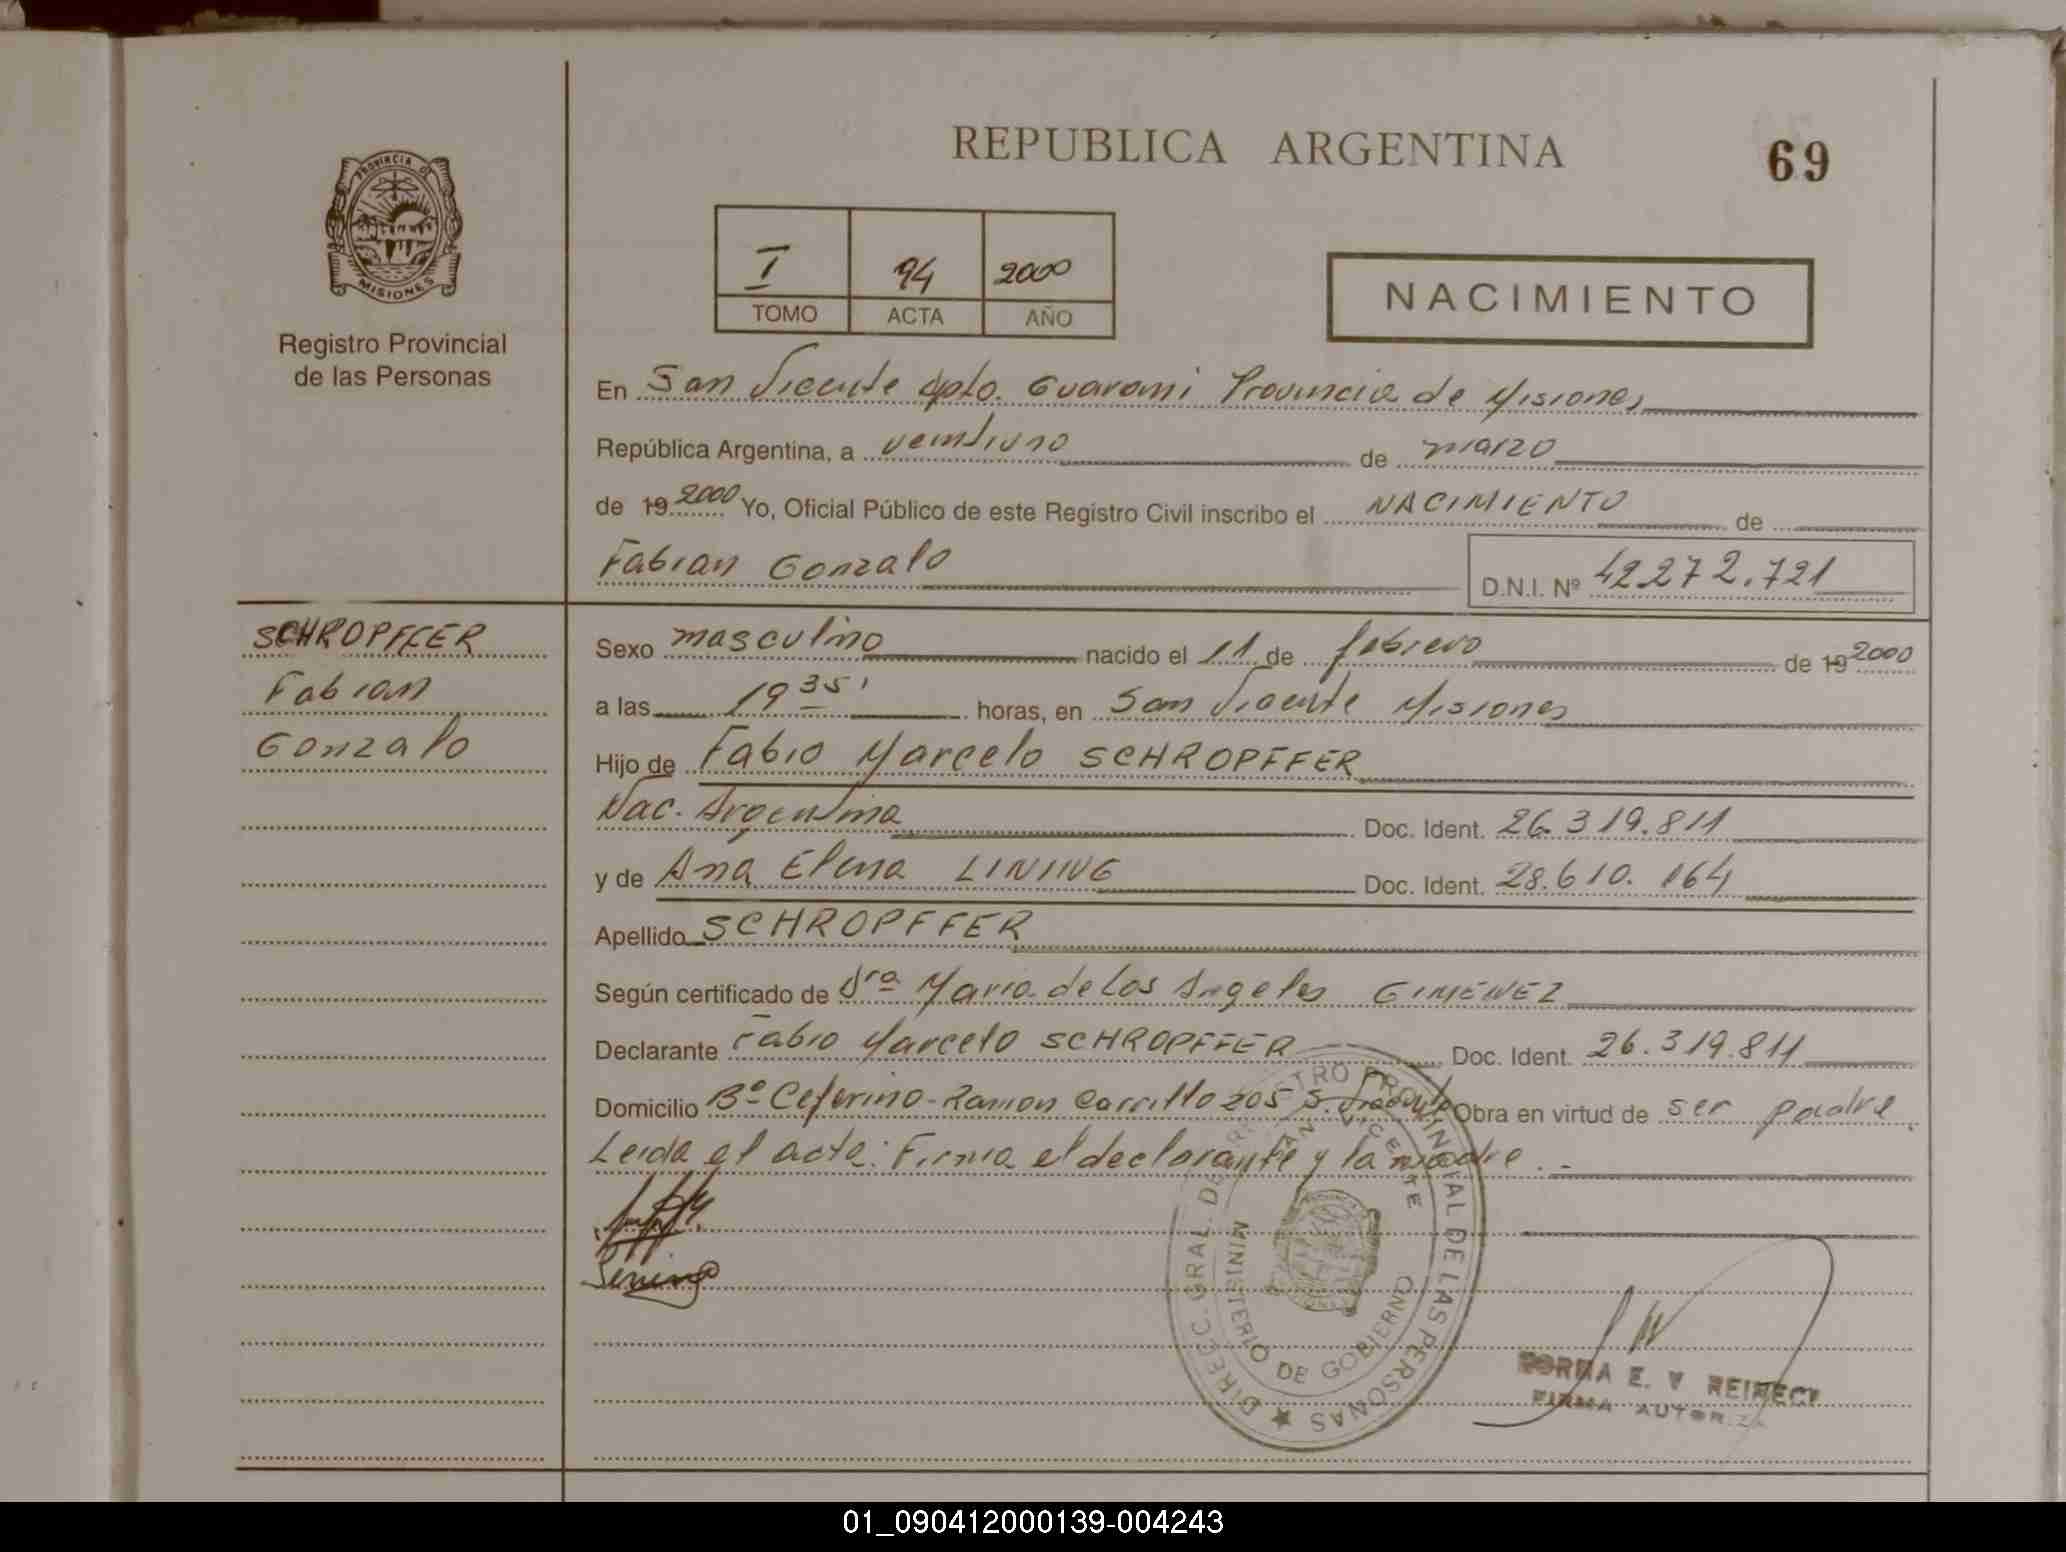 REPUBLICA ARGENTINA
69
PROVINCIA DE
MISIONES
Registro Provincial
de las Personas
I 94 2000
TOMO ACTA AÑO
NACIMIENTO
En San Vicente Dpto. Guarani Provincia de Misiones
República Argentina, a veintiuno de marzo
de 19 2000 Yo, Oficial Público de este Registro Civil inscribo el NACIMIENTO de
Fabian Gonzalo D.N.I. Nº 42.272.721
SCHROPFFER
Fabian
Gonzalo
Sexo masculino nacido el 11 de febrero de 19 2000
a las 19 35' horas, en San Vicente Misiones
Hijo de Fabio Marcelo SCHROPFFER
Nac. Argentina Doc. Ident. 26.319.811
y de Ana Elena LINING Doc. Ident. 28.610.164
Apellido SCHROPFFER
Según certificado de Dra Maria de Los Angeles GIMENEZ
Declarante Fabio Marcelo SCHROPFFER Doc. Ident. 26.319.811
Domicilio Bº Ceferino - Ramon Carrillo 205 S. Vicente Obra en virtud de ser padre.
Leida el acta: Firma el declarante y la madre.-
DIRECC. GRAL. DEL REGISTRO PROVINCIAL DE LAS PERSONAS
SAN VICENTE
MINISTERIO DE GOBIERNO
E. V
FIRMA
01_090412000139-004243